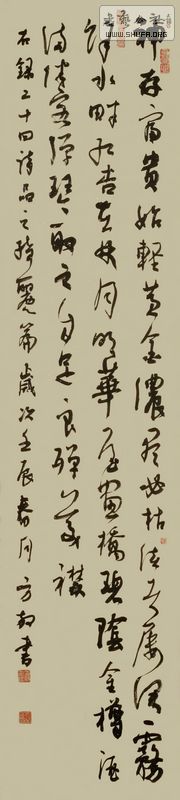 WWW.SHUFA.ORG
神存富貴始輕黃金濃尽必枯淡者屢深霧
餘水畔紅杏在林月明華屋畫橋碧陰金樽酒
滿伴客彈琴取之自足良殫美襟
右錄二十四詩品之綺麗篇歲次壬辰春月方書